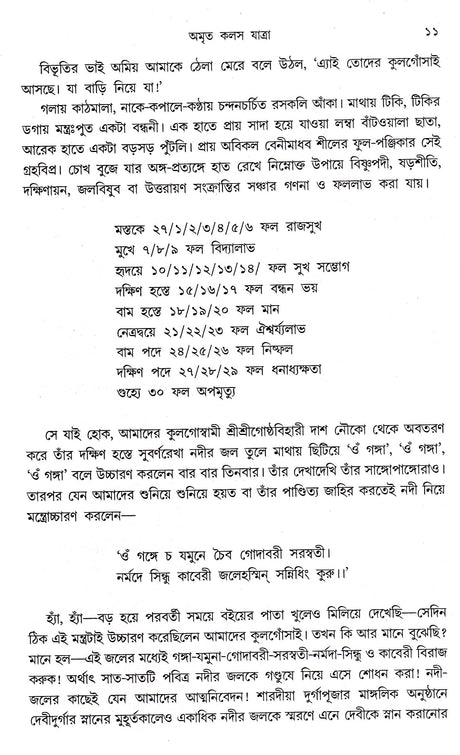 অমৃত কলস যাত্রা ১১
বিভূতির ভাই অমিয় আমাকে ঠেলা মেরে বলে উঠল, ‘এ্যাই তোদের কুলগোঁসাই
আসছে। যা বাড়ি নিয়ে যা!’
গলায় কাঠমালা, নাকে-কপালে-কণ্ঠায় চন্দনচর্চিত রসকলি আঁকা। মাথায় টিকি, টিকির
ডগায় মন্ত্রঃপুত একটা বন্ধনী। এক হাতে প্রায় সাদা হয়ে যাওয়া লম্বা বাঁটওয়ালা ছাতা,
আরেক হাতে একটা বড়সড় পুঁটলি। প্রায় অবিকল বেনীমাধব শীলের ফুল-পঞ্জিকার সেই
গ্রহবিপ্র। চোখ বুজে যার অঙ্গ-প্রত্যঙ্গে হাত রেখে নিম্নোক্ত উপায়ে বিষ্ণুপদী, ষড়শীতি,
দক্ষিণায়ন, জলবিষুব বা উত্তরায়ণ সংক্রান্তির সঞ্চার গণনা ও ফললাভ করা যায়।
মস্তকে ২৭/১/২/৩/৪/৫/৬ ফল রাজসুখ
মুখে ৭/৮/৯ ফল বিদ্যালাভ
হৃদয়ে ১০/১১/১২/১৩/১৪/ ফল সুখ সম্ভোগ
দক্ষিণ হস্তে ১৫/১৬/১৭ ফল বন্ধন ভয়
বাম হস্তে ১৮/১৯/২০ ফল মান
নেত্রদ্বয়ে ২১/২২/২৩ ফল ঐশ্বর্য্যলাভ
বাম পদে ২৪/২৫/২৬ ফল নিষ্ফল
দক্ষিণ পদে ২৭/২৮/২৯ ফল ধনাধ্যক্ষতা
গুহ্যে ৩০ ফল অপমৃত্যু
সে যাই হোক, আমাদের কুলগোস্বামী শ্রীশ্রীগোষ্ঠবিহারী দাশ নৌকো থেকে অবতরণ
করে তাঁর দক্ষিণ হস্তে সুবর্ণরেখা নদীর জল তুলে মাথায় ছিটিয়ে ‘ওঁ গঙ্গা’, ‘ওঁ গঙ্গা’,
‘ওঁ গঙ্গা’ বলে উচ্চারণ করলেন বার বার তিনবার। তাঁর দেখাদেখি তাঁর সাঙ্গোপাঙ্গোরাও।
তারপর যেন আমাদের শুনিয়ে শুনিয়ে হয়ত বা তাঁর পাণ্ডিত্য জাহির করতেই নদী নিয়ে
মন্ত্রোচ্চারণ করলেন—
‘ওঁ গঙ্গে চ যমুনে চৈব গোদাবরী সরস্বতী।
নর্মদে সিন্ধু কাবেরী জলেহস্মিন্ সন্নিধিং কুরু।।’
হ্যাঁ, হ্যাঁ—বড় হয়ে পরবর্তী সময়ে বইয়ের পাতা খুলেও মিলিয়ে দেখেছি—সেদিন
ঠিক এই মন্ত্রটাই উচ্চারণ করেছিলেন আমাদের কুলগোঁসাই। তখন কি আর মানে বুঝেছি?
মানে হল—এই জলের মধ্যেই গঙ্গা-যমুনা-গোদাবরী-সরস্বতী-নর্মদা-সিন্ধু ও কাবেরী বিরাজ
করুক! অর্থাৎ সাত-সাতটি পবিত্র নদীর জলকে গণ্ডূষে নিয়ে এসে শোধন করা! নদী-
জলের কাছেই যেন আমাদের আত্মনিবেদন! শারদীয়া দুর্গাপূজার মাঙ্গলিক অনুষ্ঠানে
দেবীদুর্গার স্নানের মুহূর্তকালেও একাধিক নদীর জলকে স্মরণে এনে দেবীকে স্নান করানোর